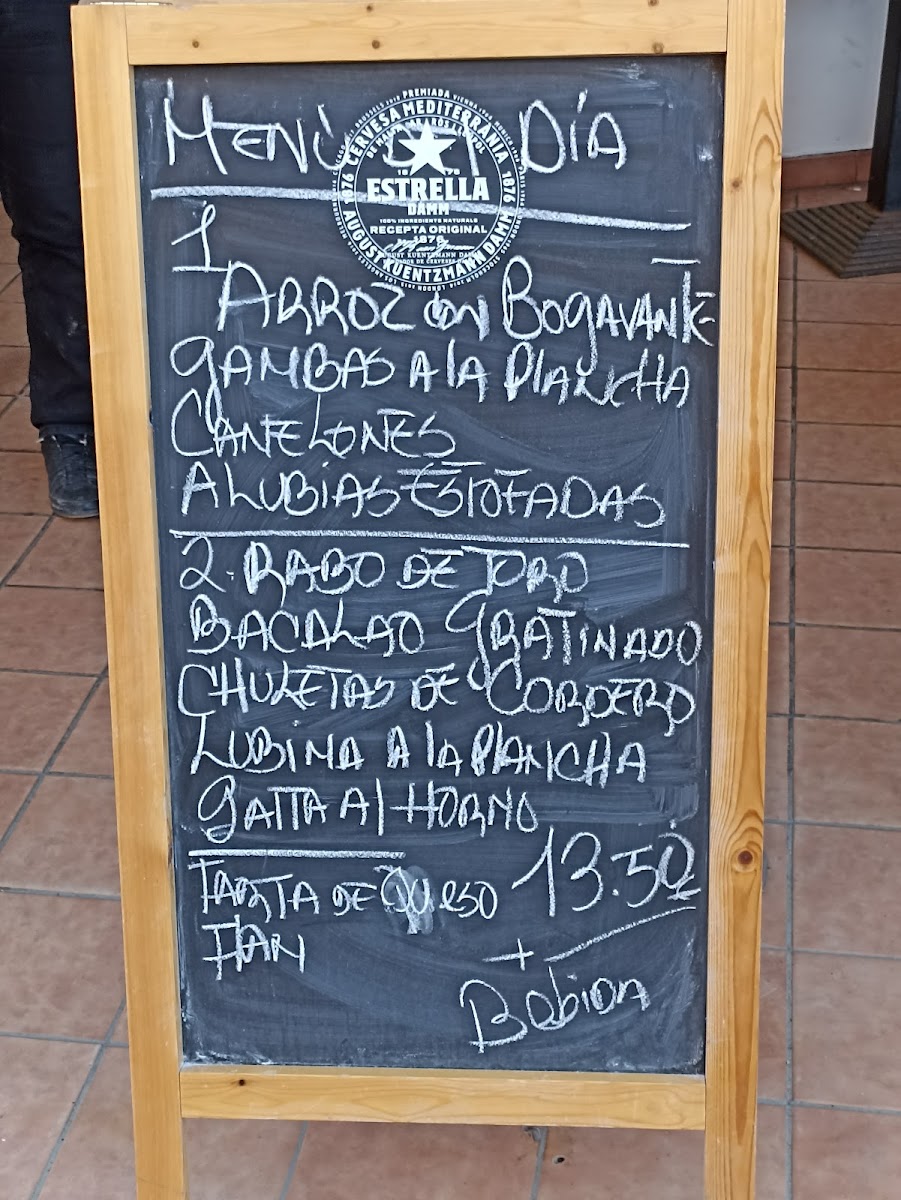 MENÚ DEL DÍA
PREMIADA
CERVESA MEDITERRÀNIA
DE MALTA, ARRÒS I LLÚPOL
1876
ESTRELLA
DAMM
100% INGREDIENTS NATURALS
RECEPTA ORIGINAL
1876
AUGUST KUENTZMANN DAMM
1876 AUGUST KUENTZMANN DAMM 1876
1
ARROZ CON BOGAVANTE
GAMBAS A LA PLANCHA
CANELONES
ALUBIAS ESTOFADAS
2. RABO DE TORO
BACALAO GRATINADO
CHULETAS DE CORDERO
LUBINA A LA PLANCHA
GAITA Al HORNO
TARTA DE QUESO 13.50
FlAN
+
Bebida